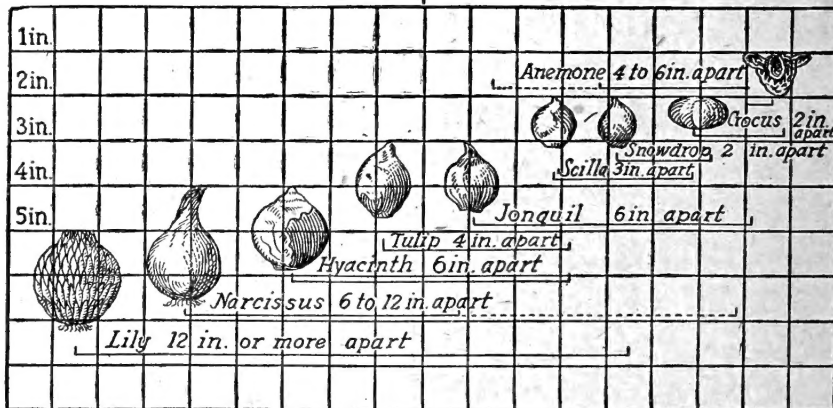 1in.
2in.
3in.
4in.
5in.
Anemone 4 to 6in. apart
Crocus 2in. apart
Snowdrop 2 in. apart
Scilla 3in. apart
Jonquil 6in. apart
Tulip 4 in. apart
Hyacinth 6in. apart
Narcissus 6 to 12 in. apart
Lily 12 in. or more apart